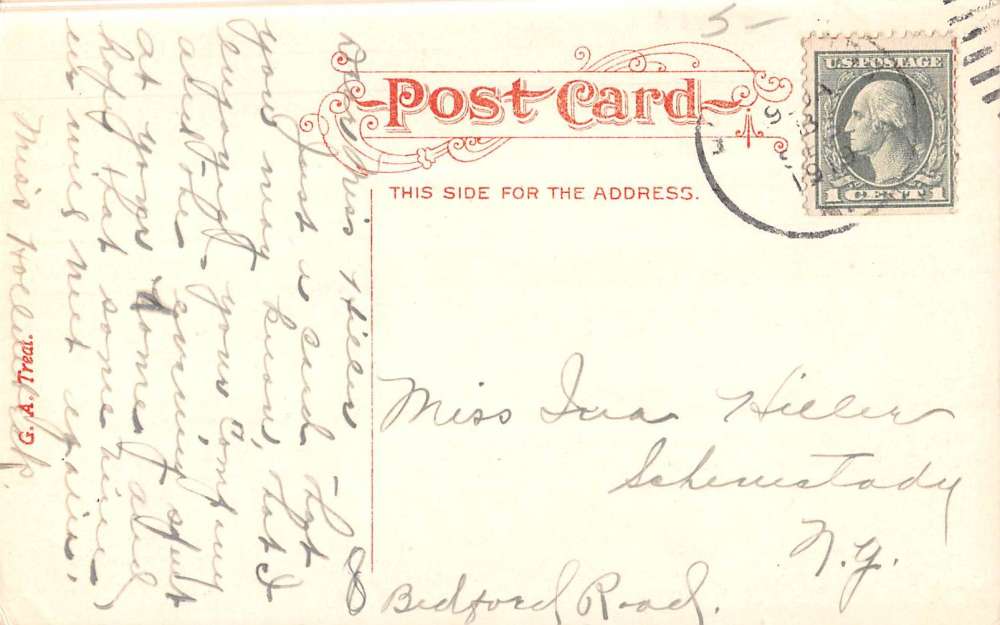 5-
U.S. POSTAGE
1 CENT 1
Post Card
THIS SIDE FOR THE ADDRESS.
Dear Miss Hiller
Just a card that
you may know, that I
enjoyed your company
at the evening spent
at your home, and
hope that some time
we will meet again.
Miss
G. A. Treat.
Miss Ina Hiller
Schenectady
N.Y.
Bedford Road.